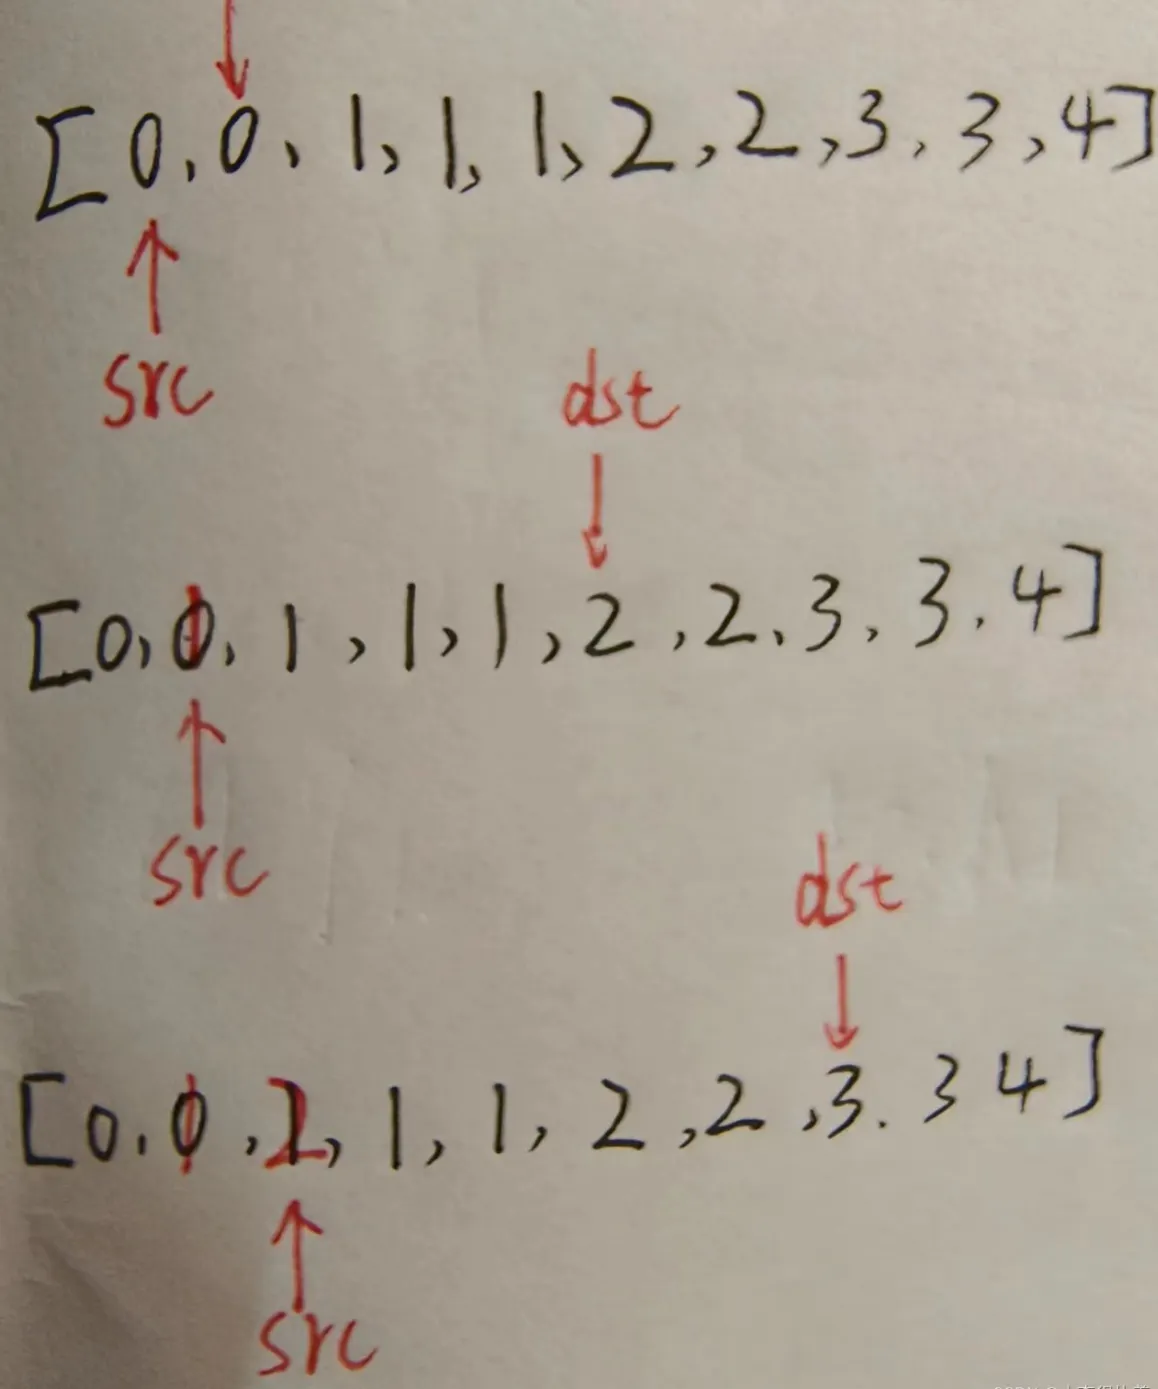 [0,0,1,1,1,2,2,3,3,4]
src
dst
[0,0,1,1,1,2,2,3,3.4]
src
dst
[0,0,2,1,1,2,2,3.3 4]
src